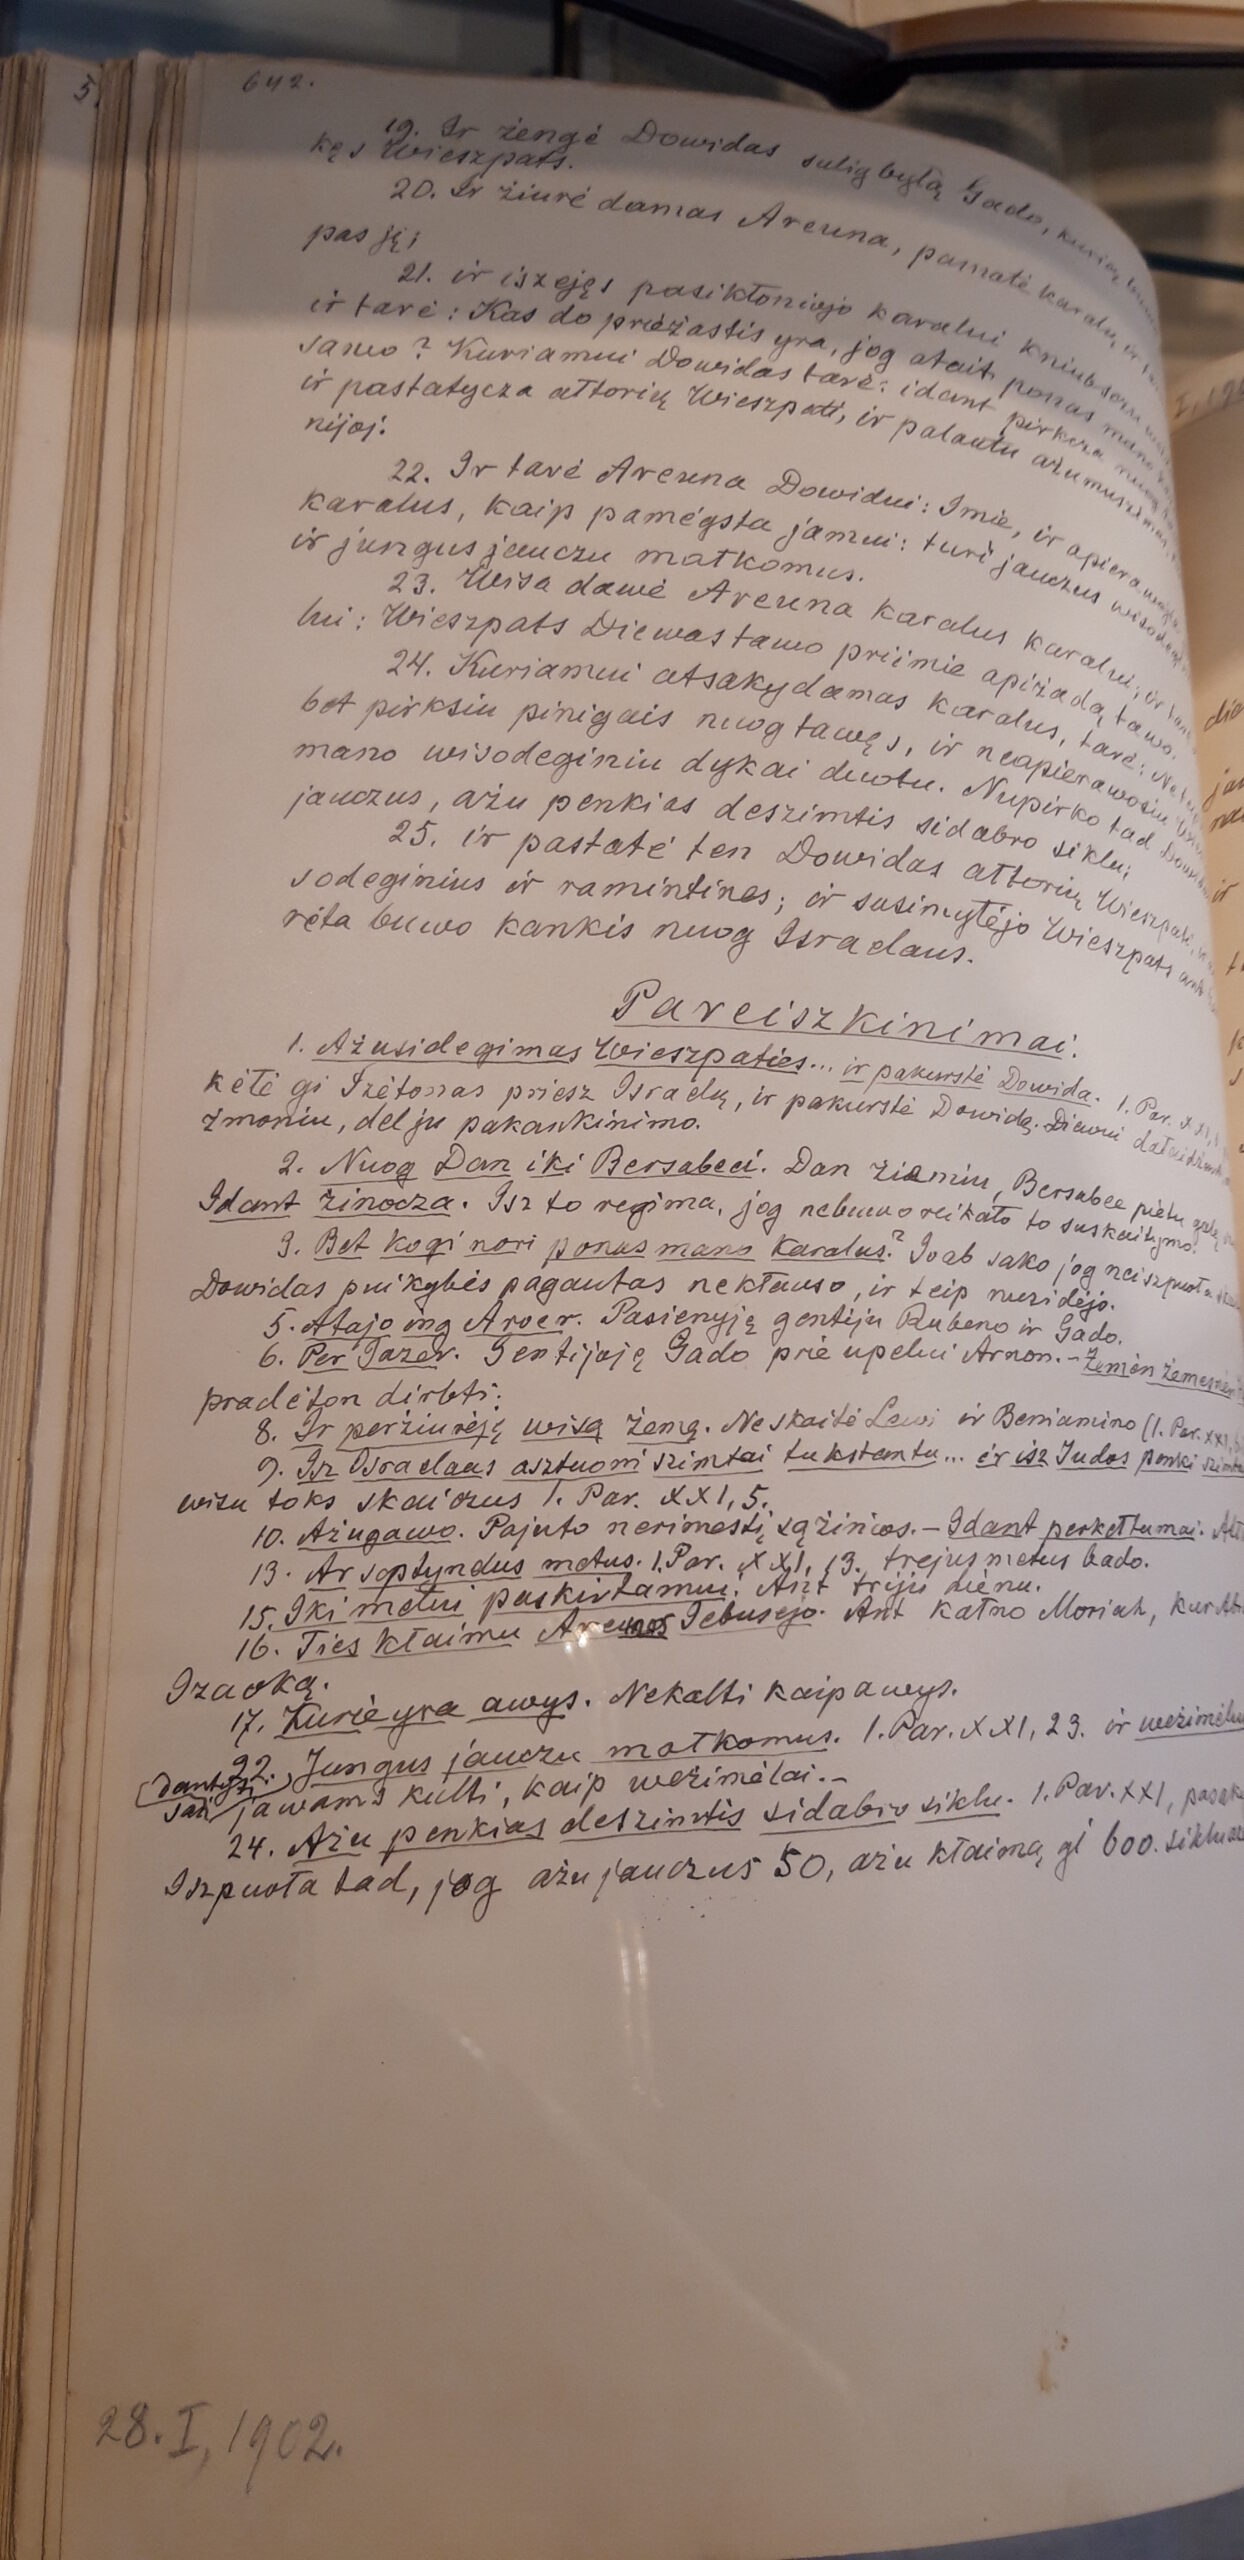 642.
19. Ir żengė Dowidas sulig bylą Gado, kurią
kęs Wieszpats.
20. Ir żiurėdamas Areuna, pamatė karalų, ir
pas jį;
21. ir iszejęs pasikłoniojo karalui kniubsczu
ir tarė: Kas do priėżastis yra, jog atait ponas mano
sawo? Kuriamui Dowidas tarė: idant pirkcza nuog
ir pastatycza ałtorių Wieszpati, ir palautu ażumuszimas,
nijoj.
22. Ir tarė Areuna Dowidui: Imie, ir apierawoja
karalus, kaip pamėgsta jamui: turi jauczus wisodegi
ir jungus jauczu małkomus.
23. Wisa dawė Areuna karalus karalui; ir tarė
lui: Wieszpats Diewas tawo priimie apiżadą tawo.
24. Kuriamui atsakydamas karalus, tarė:
bet pirksiu pinigais nuog tawęs, ir neapierawosiu
mano wisodeginiu dykai duotu. Nupirko tad
jauczus, ażu penkias deszimtis sidabro siklu;
25. ir pastatė ten Dowidas ałtorių Wieszpati,
sodeginius ir ramintines; ir susimylėjo Wieszpats ant
rėta buwo kankis nuog Israelaus.
Pareiszkinimai.
1. Ażusidegimas Wieszpaties... ir pakurstė Dowida. 1. Par. XXI,
kėlė gi Szėtonas priesz Israelų, ir pakurstė Dowidą. Diewui dałaidżent
żmoniu, del ju pakankinimo.
2. Nuog Dan iki Bersabeei. Dan żiemiu, Bersabee piėtu galą
Idant żinocza. Isz to regima, jog nebuwo reikało to suskaitymo.
3. Bet kogi nori ponas mano karalus? Joab sako jog neiszpuoła
Dowidas puikybės pagautas nekłauso, ir teip nusidėjo.
5. Atajo ing Aroer. Pasienyję gentiju Rubeno ir Gado.
6. Per Jazer. Gentijoję Gado prie upelui Arnon. - Żemėn żemesnėn
pradėton dirbti:
8. Ir perżiurėję wisą żemę. Neskaitė Lewi ir Beniamino (1. Par. XXI, 6
9. Isz Israelaus asztuoni szimtai tukstantu... ir isz Judos penki szimtai
wisu toks skaiczus 1. Par. XXI, 5.
10. Ażugawo. Pajuto nerimestį sążinės. - Idant perkełtumai.
13. Ar septyndus metus. 1. Par. XXI, 13. trejus metus bado.
15. Iki metui paskirtamui. Ant triju dienu.
16. Ties kłaimu Areunos Jebusejo. Ant kałno Moriah, kur
Izaoką.
17. Kurie yra awys. Nekalti kaip awys.
22. Jungus jauczu małkomus. 1. Par. XXI, 23. ir weżimėlus
jawams kulti, kaip weżimėlai.-
24. Ażu penkias deszimtis sidabro siklu. 1. Par. XXI,
Iszpuoła tad, jog ażu jauczus 50, ażu kłaimą gi 600. siklu
28. I, 1902.